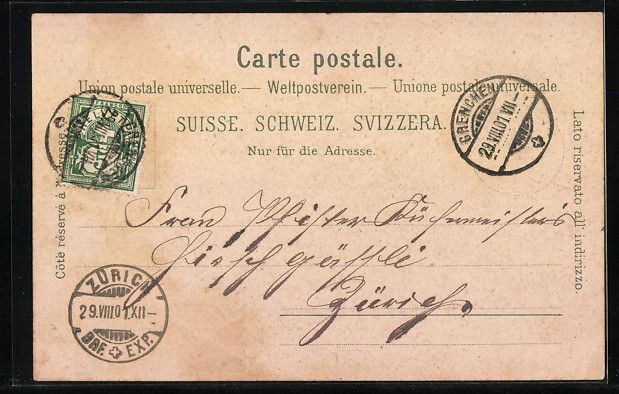 Carte postale.
Union postale universelle. — Weltpostverein. — Unione postale universale.
SUISSE. SCHWEIZ. SVIZZERA.
Nur für die Adresse.
Côté réservé à l'adresse.
Lato riservato all' indirizzo.
GRENCHEN
29.VIII.01.VII-
Frau Pfister Küchmeister's
Hirschgässli
Zürich.
ZÜRICH
29.VIII.01.XII-
BRF. EXP.